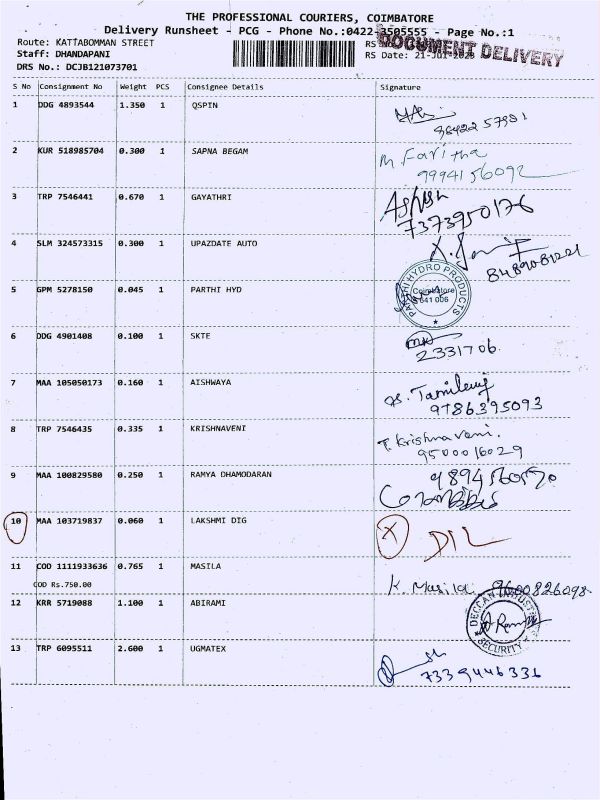 THE PROFESSIONAL COURIERS, COIMBATORE
Delivery Runsheet - PCG - Phone No.:0422-3505555 - Page No.:1
Route: KATTABOMMAN STREET
RS
DOCUMENT DELIVERY
Staff: DHANDAPANI
RS Date: 21-Jul-2023
DRS No.: DCJB121073701
S No Consignment No Weight PCS Consignee Details Signature
1 DDG 4893544 1.350 1 QSPIN
2 KUR 518985704 0.300 1 SAPNA BEGAM
M Faritha
9994156092
3 TRP 7546441 0.670 1 GAYATHRI
7373950176
4 SLM 324573315 0.300 1 UPAZDATE AUTO
8489081221
5 GPM 5278150 0.045 1 PARTHI HYD
PARTHI HYDRO PRODUCTS
Coimbatore
641 006
6 DDG 4901408 0.100 1 SKTE
2331706
7 MAA 105050173 0.160 1 AISHWAYA
9786395093
8 TRP 7546435 0.335 1 KRISHNAVENI
T. Krishnaveni.
9500016029
9 MAA 100829580 0.250 1 RAMYA DHAMODARAN
10 MAA 103719837 0.060 1 LAKSHMI DIG
X
11 COD 1111933636 0.765 1 MASILA
COD Rs.750.00
K. Masila 9600826098
12 KRR 5719088 1.100 1 ABIRAMI
DECCAN INDUSTRIES
SECURITY
13 TRP 6095511 2.600 1 UGMATEX
7339446336